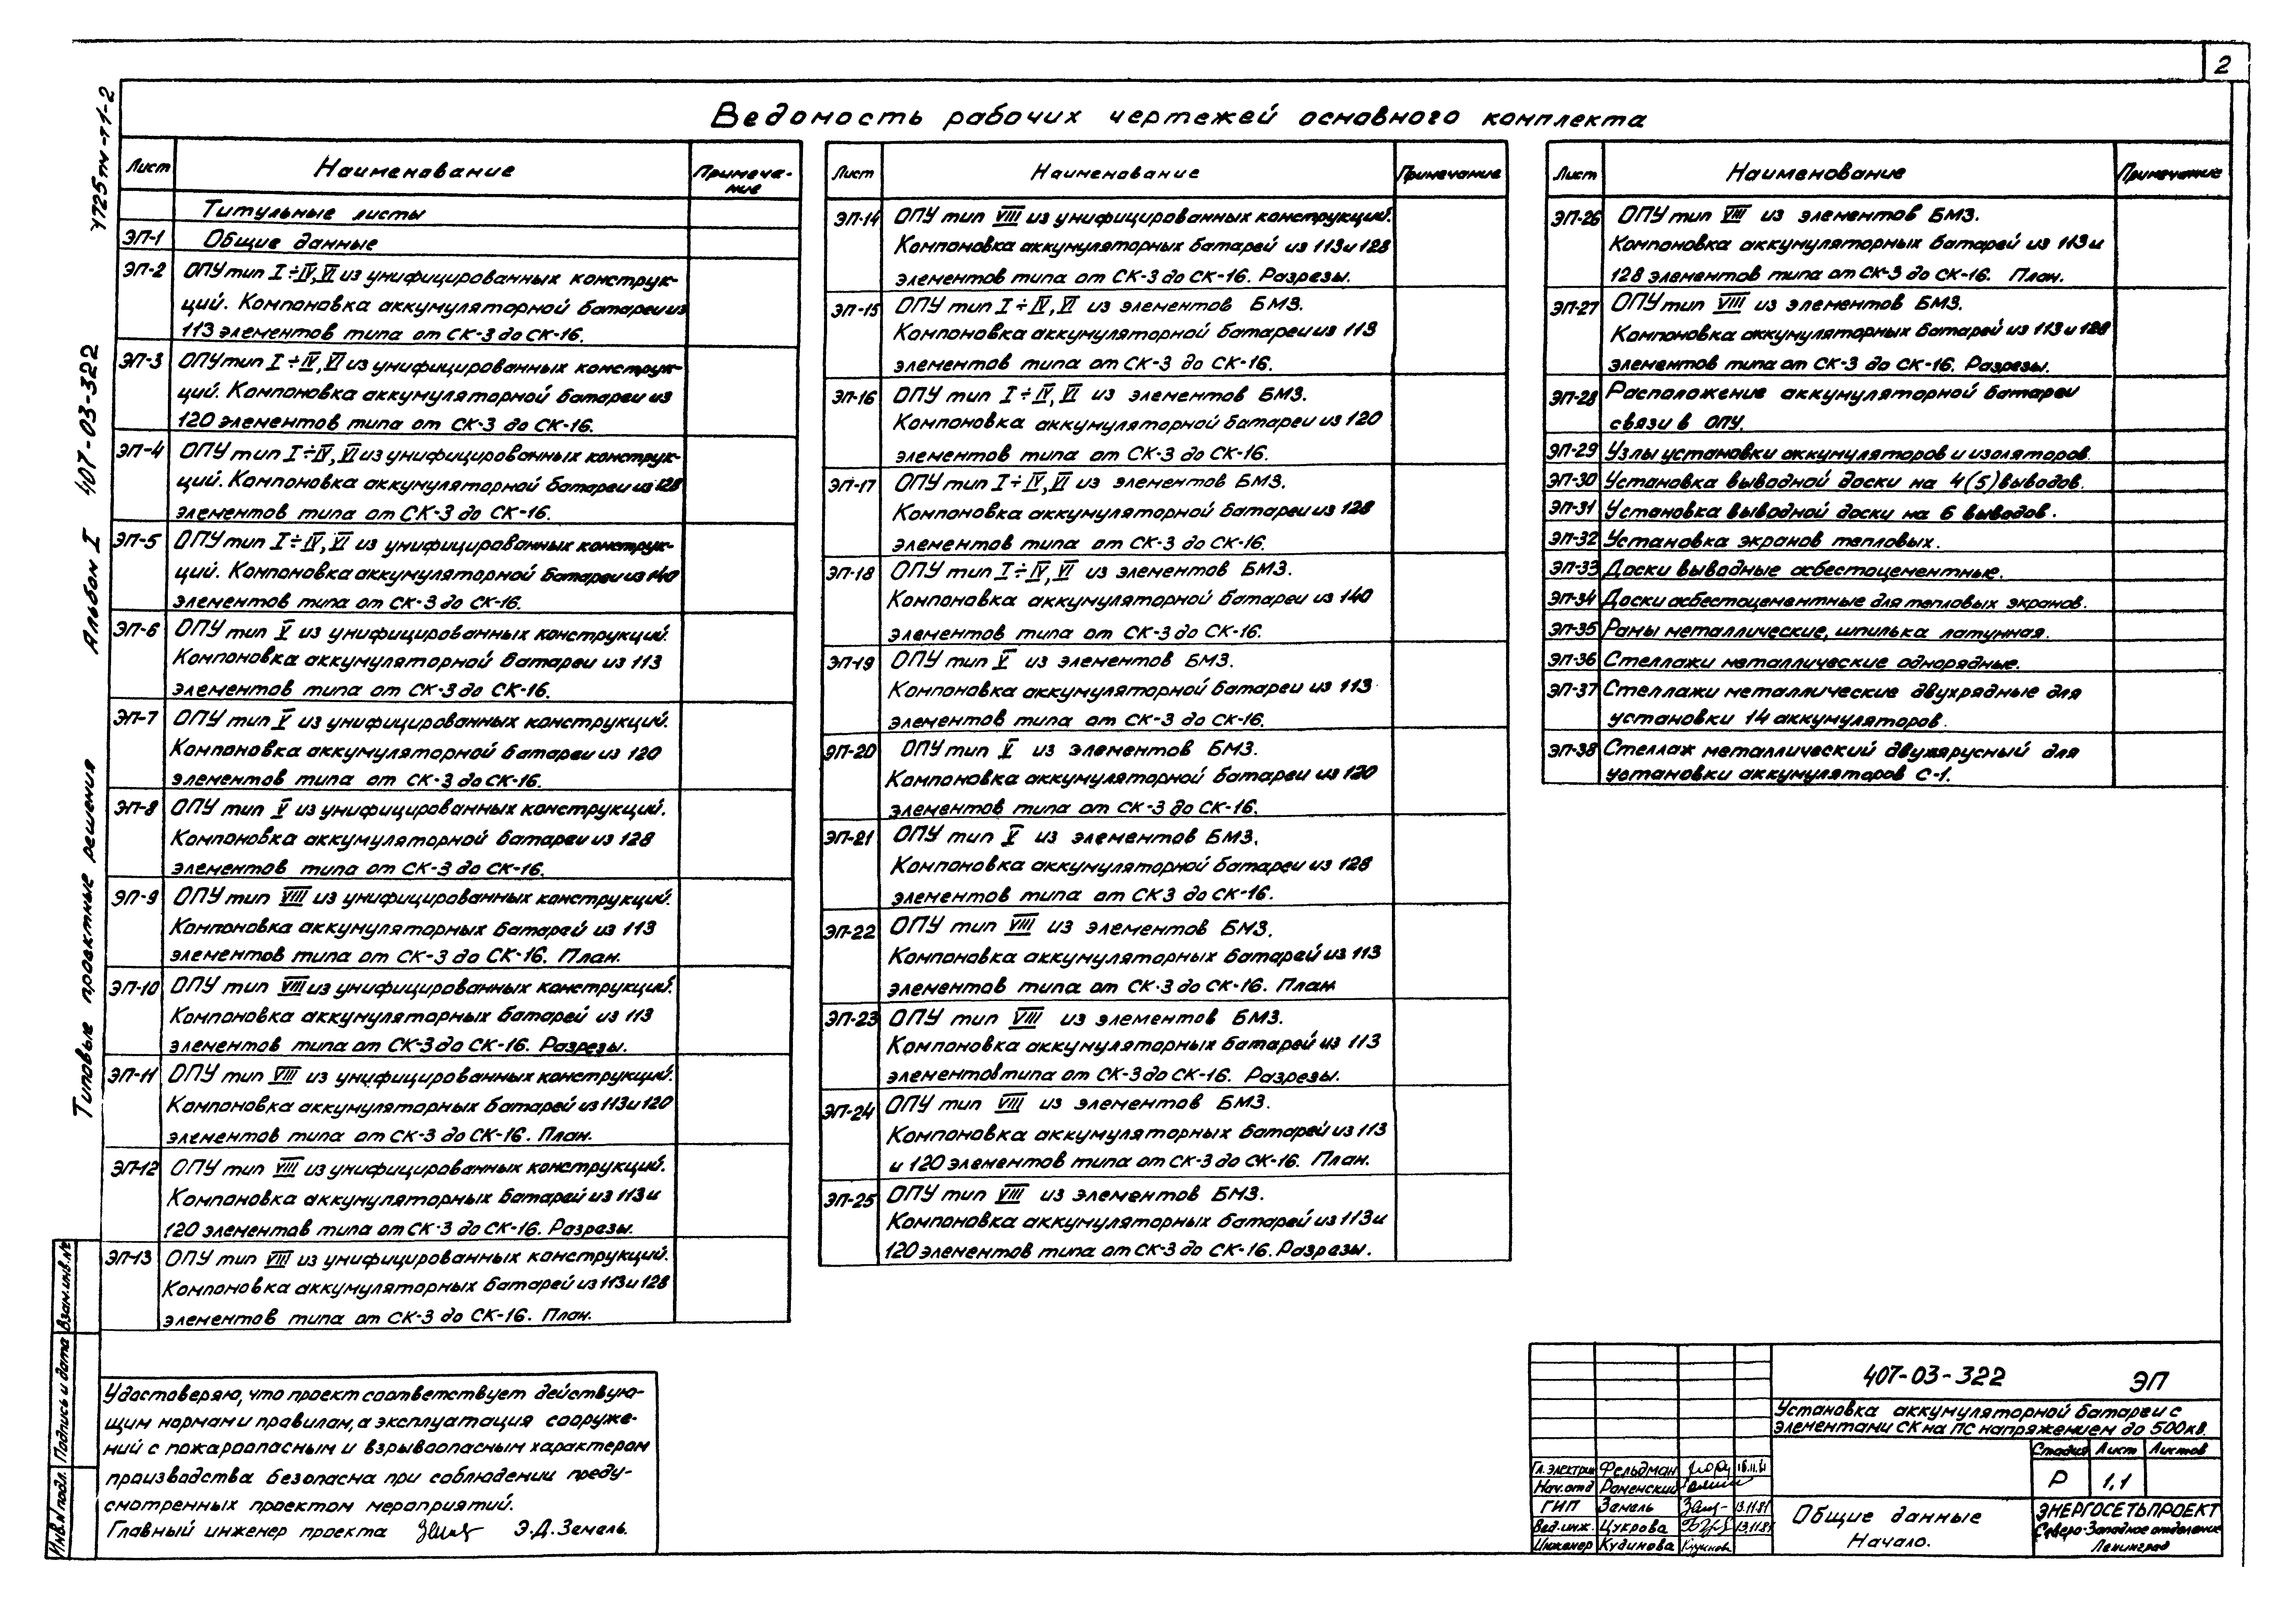 2
Ведомость рабочих чертежей основного комплекта
4725тм-т1-2
Альбом I 407-03-322
Типовые проектные решения
Лист Наименование Примеча-
ние
Титульные листы
ЭП-1 Общие данные
ЭП-2 ОПУ тип I÷IV,VI из унифицированных конструк-
ций. Компоновка аккумуляторной батареи из
113 элементов типа от СК-3 до СК-16.
ЭП-3 ОПУ тип I÷IV,VI из унифицированных конструк-
ций. Компоновка аккумуляторной батареи из
120 элементов типа от СК-3 до СК-16.
ЭП-4 ОПУ тип I÷IV,VI из унифицированных конструк-
ций. Компоновка аккумуляторной батареи из 128
элементов типа от СК-3 до СК-16.
ЭП-5 ОПУ тип I÷IV,VI из унифицированных конструк-
ций. Компоновка аккумуляторной батареи из 140
элементов типа от СК-3 до СК-16.
ЭП-6 ОПУ тип V из унифицированных конструкций.
Компоновка аккумуляторной батареи из 113
элементов типа от СК-3 до СК-16.
ЭП-7 ОПУ тип V из унифицированных конструкций.
Компоновка аккумуляторной батареи из 120
элементов типа от СК-3 до СК-16.
ЭП-8 ОПУ тип V из унифицированных конструкций.
Компоновка аккумуляторной батареи из 128
элементов типа от СК-3 до СК-16.
ЭП-9 ОПУ тип VIII из унифицированных конструкций.
Компоновка аккумуляторных батарей из 113
элементов типа от СК-3 до СК-16. План.
ЭП-10 ОПУ тип VIII из унифицированных конструкций.
Компоновка аккумуляторных батарей из 113
элементов типа от СК-3 до СК-16. Разрезы.
ЭП-11 ОПУ тип VIII из унифицированных конструкций.
Компоновка аккумуляторных батарей из 113 и 120
элементов типа от СК-3 до СК-16. План.
ЭП-12 ОПУ тип VIII из унифицированных конструкций.
Компоновка аккумуляторных батарей из 113 и
120 элементов типа от СК-3 до СК-16. Разрезы.
ЭП-13 ОПУ тип VIII из унифицированных конструкций.
Компоновка аккумуляторных батарей из 113 и 128
элементов типа от СК-3 до СК-16. План.
Лист Наименование Примечание
ЭП-14 ОПУ тип VIII из унифицированных конструкций.
Компоновка аккумуляторных батарей из 113 и 128
элементов типа от СК-3 до СК-16. Разрезы.
ЭП-15 ОПУ тип I÷IV,VI из элементов БМЗ.
Компоновка аккумуляторной батареи из 113
элементов типа от СК-3 до СК-16.
ЭП-16 ОПУ тип I÷IV,VI из элементов БМЗ.
Компоновка аккумуляторной батареи из 120
элементов типа от СК-3 до СК-16.
ЭП-17 ОПУ тип I÷IV,VI из элементов БМЗ.
Компоновка аккумуляторной батареи из 128
элементов типа от СК-3 до СК-16.
ЭП-18 ОПУ тип I÷IV,VI из элементов БМЗ.
Компоновка аккумуляторной батареи из 140
элементов типа от СК-3 до СК-16.
ЭП-19 ОПУ тип V из элементов БМЗ.
Компоновка аккумуляторной батареи из 113
элементов типа от СК-3 до СК-16.
ЭП-20 ОПУ тип V из элементов БМЗ.
Компоновка аккумуляторной батареи из 120
элементов типа от СК-3 до СК-16.
ЭП-21 ОПУ тип V из элементов БМЗ.
Компоновка аккумуляторной батареи из 128
элементов типа от СК3 до СК-16.
ЭП-22 ОПУ тип VIII из элементов БМЗ.
Компоновка аккумуляторных батарей из 113
элементов типа от СК-3 до СК-16. План
ЭП-23 ОПУ тип VIII из элементов БМЗ.
Компоновка аккумуляторных батарей из 113
элементов типа от СК-3 до СК-16. Разрезы.
ЭП-24 ОПУ тип VIII из элементов БМЗ.
Компоновка аккумуляторных батарей из 113
и 120 элементов типа от СК-3 до СК-16. План.
ЭП-25 ОПУ тип VIII из элементов БМЗ.
Компоновка аккумуляторных батарей из 113 и
120 элементов типа от СК-3 до СК-16. Разрезы.
Лист Наименование Примечание
ЭП-26 ОПУ тип VIII из элементов БМЗ.
Компоновка аккумуляторных батарей из 113 и
128 элементов типа от СК-3 до СК-16. План.
ЭП-27 ОПУ тип VIII из элементов БМЗ.
Компоновка аккумуляторных батарей из 113 и 128
элементов типа от СК-3 до СК-16. Разрезы.
ЭП-28 Расположение аккумуляторной батареи
связи в ОПУ.
ЭП-29 Узлы установки аккумуляторов и изоляторов.
ЭП-30 Установка выводной доски на 4(5) выводов.
ЭП-31 Установка выводной доски на 6 выводов.
ЭП-32 Установка экранов тепловых.
ЭП-33 Доски выводные асбестоцементные.
ЭП-34 Доски асбестоцементные для тепловых экранов.
ЭП-35 Рамы металлические, шпилька латунная.
ЭП-36 Стеллажи металлические однорядные.
ЭП-37 Стеллажи металлические двухрядные для
установки 14 аккумуляторов.
ЭП-38 Стеллаж металлический двухярусный для
установки аккумуляторов С-1.
Взам.инв.№
Подпись и дата
Инв.№подл.
Удостоверяю, что проект соответствует действую-
щим нормам и правилам, а эксплуатация сооруже-
ний с пожароопасным и взрывоопасным характером
производства безопасна при соблюдении преду-
смотренных проектом мероприятий.
Главный инженер проекта Э.Д.Земель.
407-03-322 ЭП
Установка аккумуляторной батареи с
элементами СК на ПС напряжением до 500кв.
Стадия Лист Листов
Р 1,1
Гл.электрик Фельдман
Нач.отд Раменский
ГИП Земель 13.11.81
Вед.инж. Цукрова 13.11.81
Инженер Кудинова
Общие данные
Начало.
ЭНЕРГОСЕТЬПРОЕКТ
Северо-Западное отделение
Ленинград